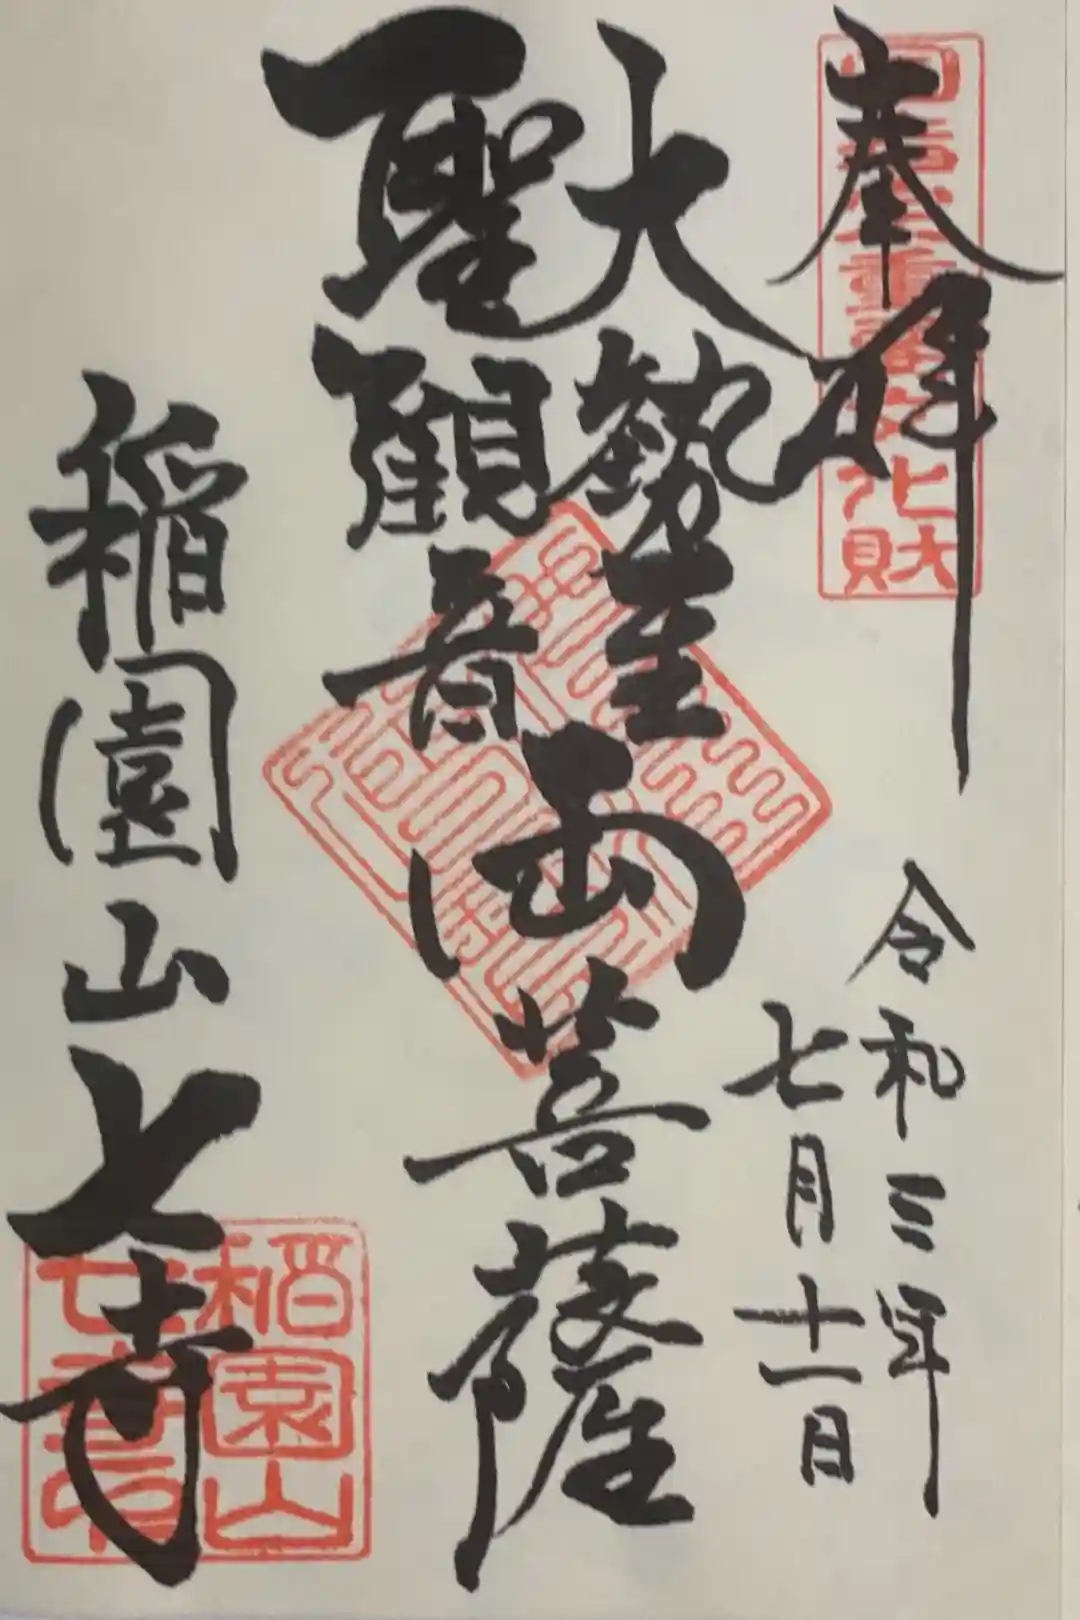 奉拝
令和三年
七月十一日
大勢至
聖観音
両菩薩
稲園山七寺
稲園山
七寺印